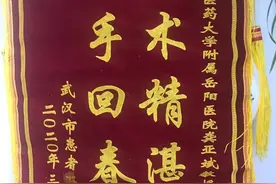 医药大学附属岳阳医院龚亚斌教
术精湛
手回春
武汉市患者
二〇二〇年三